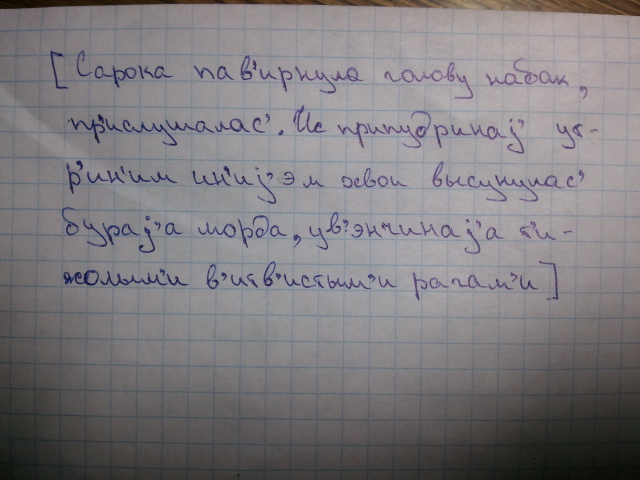 [Сарока пав'ирнула голову набак,
пр'ислушалас'. Ис припудринај' ут-
р'ин'им ин'иј'эм хвои высунулас'
бурај'а морда, ув'энчинај'а т'и-
жолым'и в'итв'истым'и рагам'и]